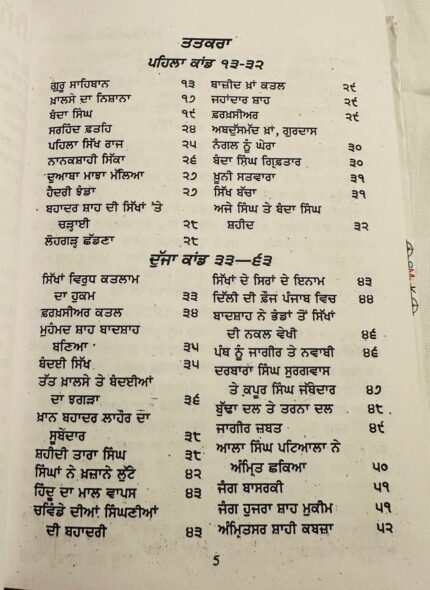 ਤਤਕਰਾ
ਪਹਿਲਾ ਕਾਂਡ ੧੩-੩੨
ਗੁਰੂ ਸਾਹਿਬਾਨ ੧੩
ਖ਼ਾਲਸੇ ਦਾ ਨਿਸ਼ਾਨਾ ੧੭
ਬੰਦਾ ਸਿੰਘ ੧੯
ਸਰਹਿੰਦ ਫ਼ਤਹਿ ੨੪
ਪਹਿਲਾ ਸਿੱਖ ਰਾਜ ੨੫
ਨਾਨਕਸ਼ਾਹੀ ਸਿੱਕਾ ੨੬
ਦੁਆਬਾ ਮਾਝਾ ਮੱਲਿਆ ੨੭
ਹੈਦਰੀ ਝੰਡਾ ੨੭
ਬਹਾਦਰ ਸ਼ਾਹ ਦੀ ਸਿੱਖਾਂ 'ਤੇ
ਚੜ੍ਹਾਈ ੨੮
ਲੋਹਗੜ੍ਹ ਛੱਡਣਾ ੨੮
ਬਾਜ਼ੀਦ ਖ਼ਾਂ ਕਤਲ ੨੯
ਜਹਾਂਦਾਰ ਸ਼ਾਹ ੨੯
ਫ਼ਰਖ਼ਸੀਅਰ ੨੯
ਅਬਦੁੱਸਮੱਦ ਖ਼ਾਂ, ਗੁਰਦਾਸ
ਨੰਗਲ ਨੂੰ ਘੇਰਾ ੩੦
ਬੰਦਾ ਸਿੰਘ ਗ੍ਰਿਫ਼ਤਾਰ ੩੦
ਖ਼ੂਨੀ ਸਤਵਾਰਾ ੩੧
ਸਿੱਖ ਬੱਚਾ ੩੧
ਅਜੇ ਸਿੰਘ ਤੇ ਬੰਦਾ ਸਿੰਘ
ਸ਼ਹੀਦ ੩੨
ਦੂੱਜਾ ਕਾਂਡ ੩੩—੬੩
ਸਿੱਖਾਂ ਵਿਰੁਧ ਕਤਲਾਮ
ਦਾ ਹੁਕਮ ੩੩
ਫ਼ਰਖ਼ਸੀਅਰ ਕਤਲ ੩੪
ਮੁਹੰਮਦ ਸ਼ਾਹ ਬਾਦਸ਼ਾਹ
ਬਣਿਆ ੩੫
ਬੰਦਈ ਸਿੱਖ ੩੫
ਤੱਤ ਖ਼ਾਲਸੇ ਤੇ ਬੰਦਈਆਂ
ਦਾ ਝਗੜਾ ੩੬
ਖ਼ਾਨ ਬਹਾਦਰ ਲਾਹੌਰ ਦਾ
ਸੂਬੇਦਾਰ ੩੮
ਸ਼ਹੀਦੀ ਤਾਰਾ ਸਿੰਘ ੩੮
ਸਿੰਘਾਂ ਨੇ ਖ਼ਜ਼ਾਨੇ ਲੁੱਟੇ ੪੨
ਹਿੰਦੂ ਦਾ ਮਾਲ ਵਾਪਸ ੪੩
ਚਵਿੰਡੇ ਦੀਆਂ ਸਿੰਘਣੀਆਂ
ਦੀ ਬਹਾਦਰੀ ੪੩
ਸਿੱਖਾਂ ਦੇ ਸਿਰਾਂ ਦੇ ਇਨਾਮ ੪੩
ਦਿੱਲੀ ਦੀ ਫ਼ੌਜ ਪੰਜਾਬ ਵਿਚ ੪੪
ਬਾਦਸ਼ਾਹ ਨੇ ਭੰਡਾਂ ਤੋਂ ਸਿੱਖਾਂ
ਦੀ ਨਕਲ ਵੇਖੀ ੪੬
ਪੰਥ ਨੂੰ ਜਾਗੀਰ ਤੇ ਨਵਾਬੀ ੪੬
ਦਰਬਾਰਾ ਸਿੰਘ ਸੁਰਗਵਾਸ
ਤੇ ਕਪੂਰ ਸਿੰਘ ਜੱਥੇਦਾਰ ੪੭
ਬੁੱਢਾ ਦਲ ਤੇ ਤਰਨਾ ਦਲ ੪੮
ਜਾਗੀਰ ਜ਼ਬਤ ੪੯
ਆਲਾ ਸਿੰਘ ਪਟਿਆਲਾ ਨੇ
ਅੰਮ੍ਰਿਤ ਛਕਿਆ ੫੦
ਜੰਗ ਬਾਸਰਕੀ ੫੧
ਜੰਗ ਹੁਜਰਾ ਸ਼ਾਹ ਮੁਕੀਮ ੫੧
ਅੰਮ੍ਰਿਤਸਰ ਸ਼ਾਹੀ ਕਬਜ਼ਾ ੫੨
5